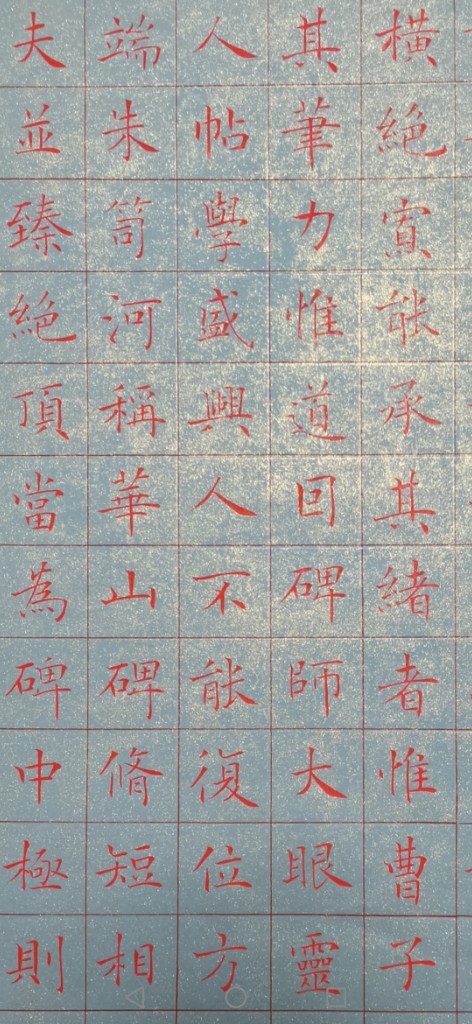 橫絕寡能承其緒者惟曹子
其筆力惟道回碑師大眼靈
人帖學盛興人不能復位方
端朱笥河稱華山碑脩短相
夫並臻絕頂當為碑中極則